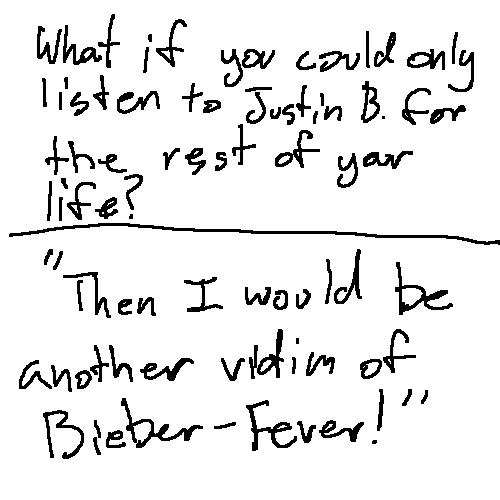 What if you could only
listen to Justin B. for
the rest of your
life?
"Then I would be
another victim of
Bieber-Fever!"